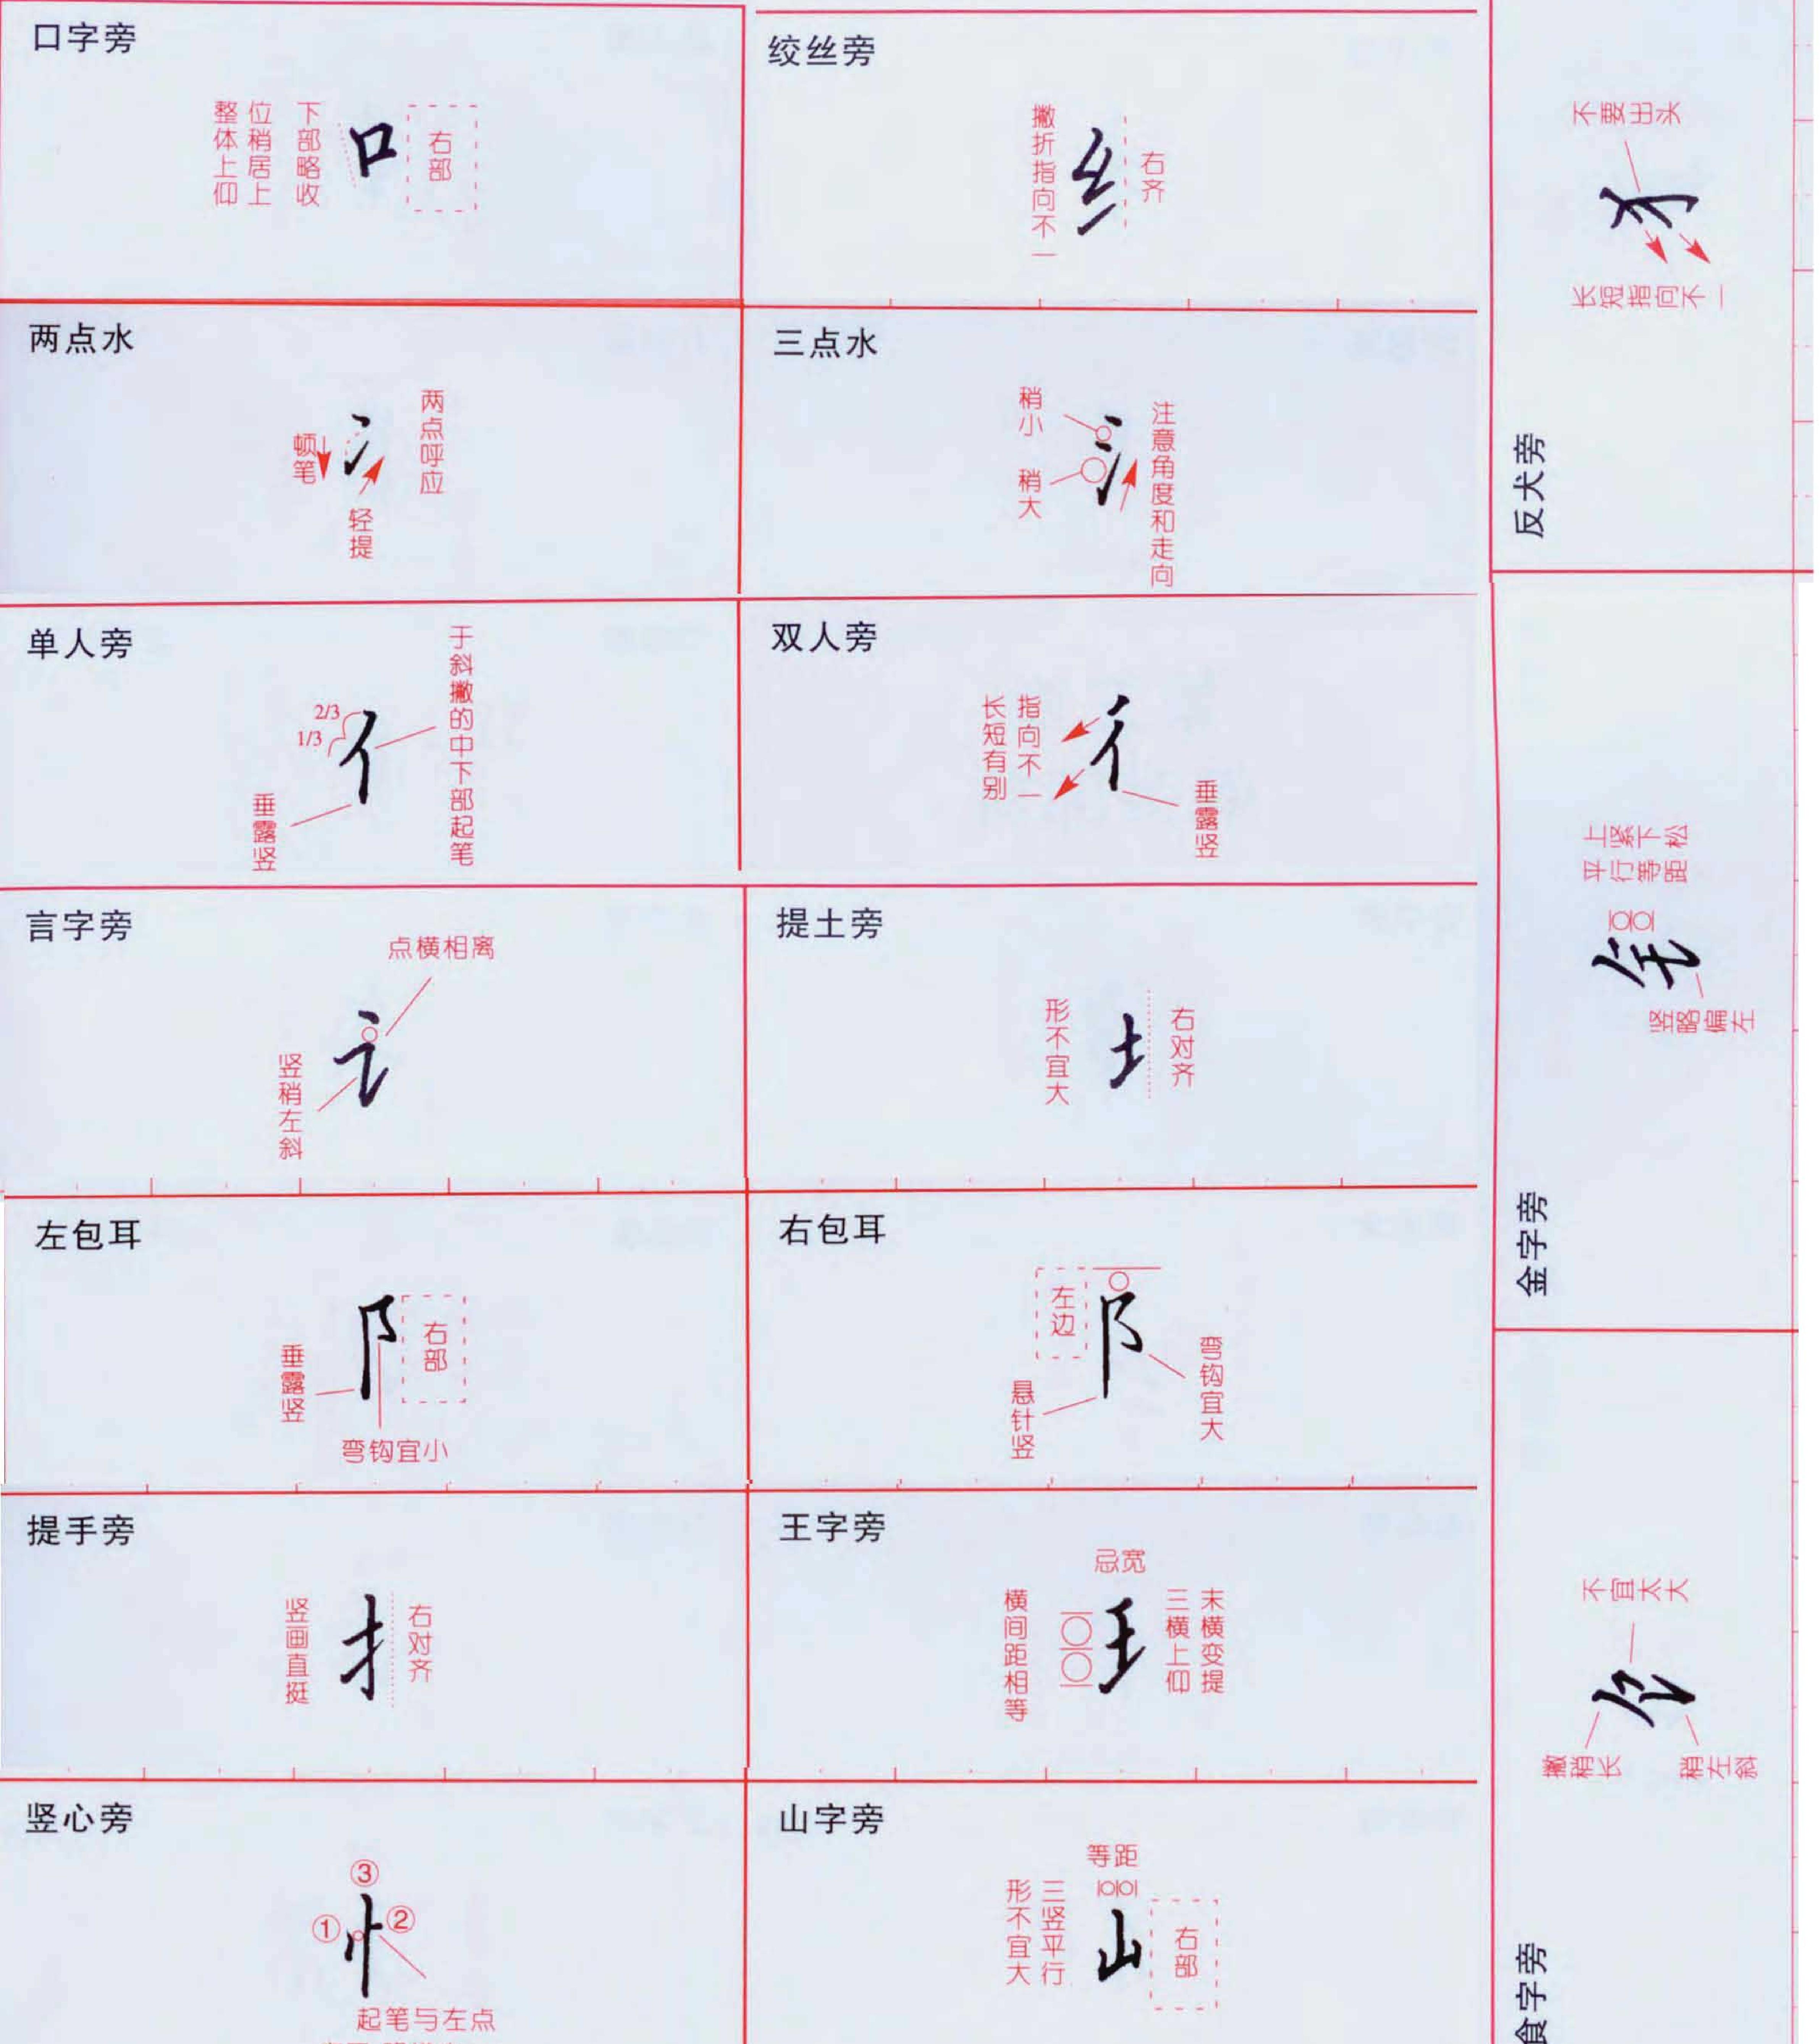 口字旁
整体上仰
位稍居上
下部略收
口
右部
绞丝旁
撇折指向不一
纟
右齐
两点水
顿笔
冫
轻提
两点呼应
三点水
稍小
稍大
氵
注意角度和走向
单人旁
2/3
1/3
亻
垂露竖
于斜撇的中下部起笔
双人旁
长短有别
指向不一
彳
垂露竖
言字旁
点横相离
讠
竖稍左斜
提土旁
形不宜大
土
右对齐
左包耳
垂露竖
阝
右部
弯钩宜小
右包耳
左边
阝
悬针竖
弯钩宜大
提手旁
竖画直挺
扌
右对齐
王字旁
忌宽
横间距相等
王
三横上仰
末横变提
竖心旁
③
①
②
忄
起笔与左点
山字旁
等距
形不宜大
三竖平行
山
右部
反犬旁
不要出头
犭
长短指向不一
金字旁
上紧下松
平行等距
钅
竖略偏左
食字旁
不宜太大
饣
撇稍长
稍左斜